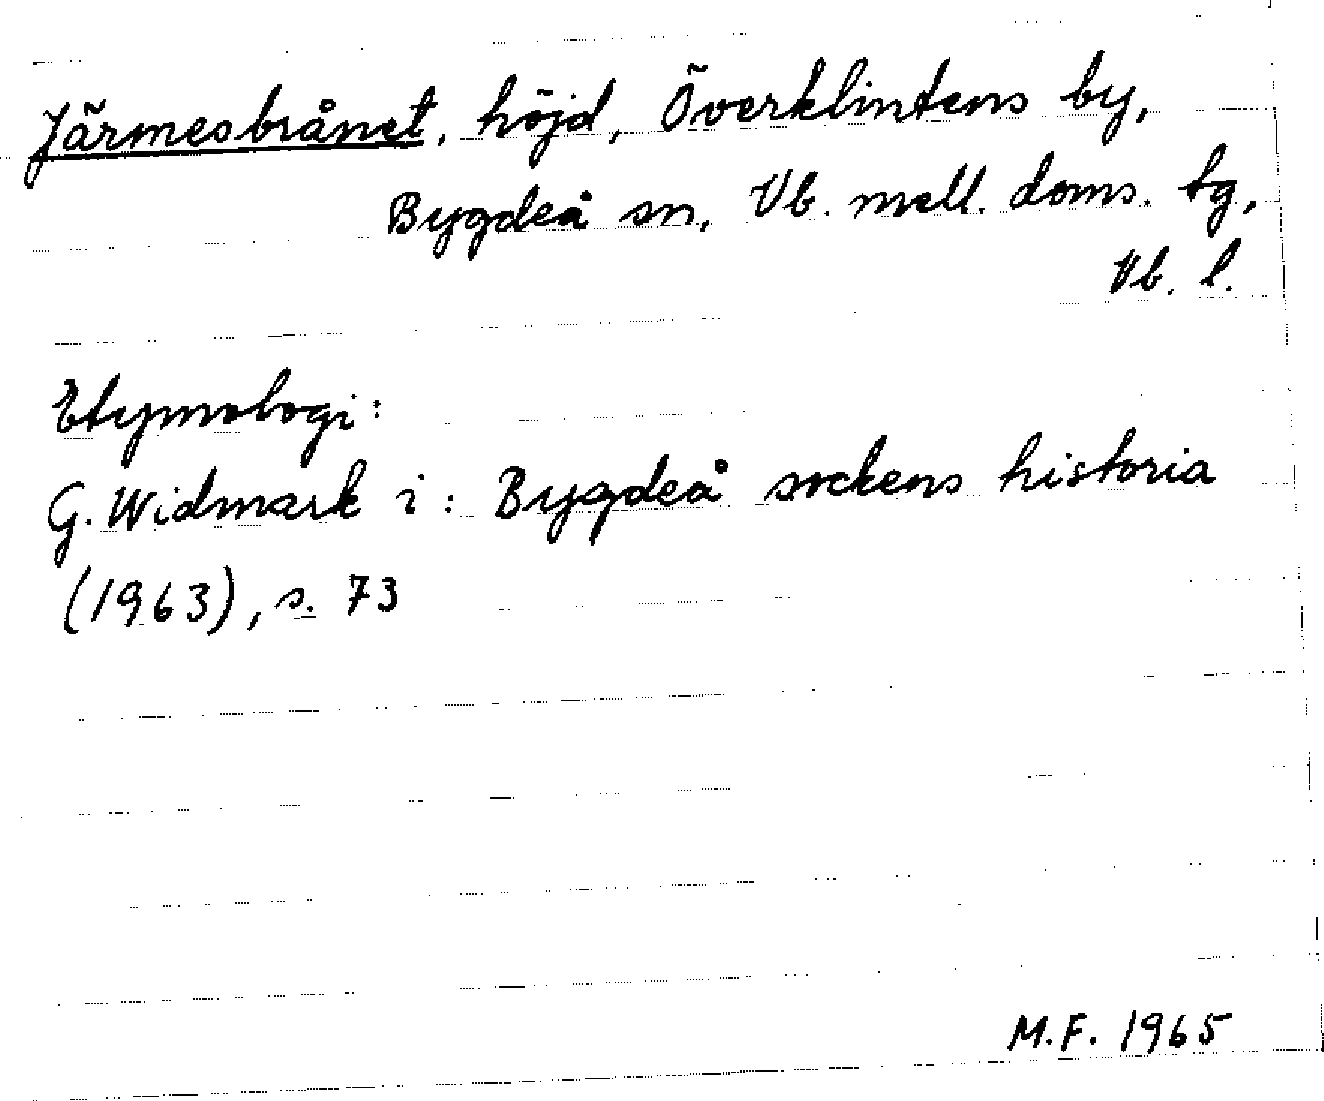 Järmesbrånet, höjd, Överklintens by,
Bygdeå sn, Vb. mell. doms. tg,
Vb. l.
Etymologi:
G. Widmark i: Bygdeå sockens historia
(1963), s. 73
M.F. 1965